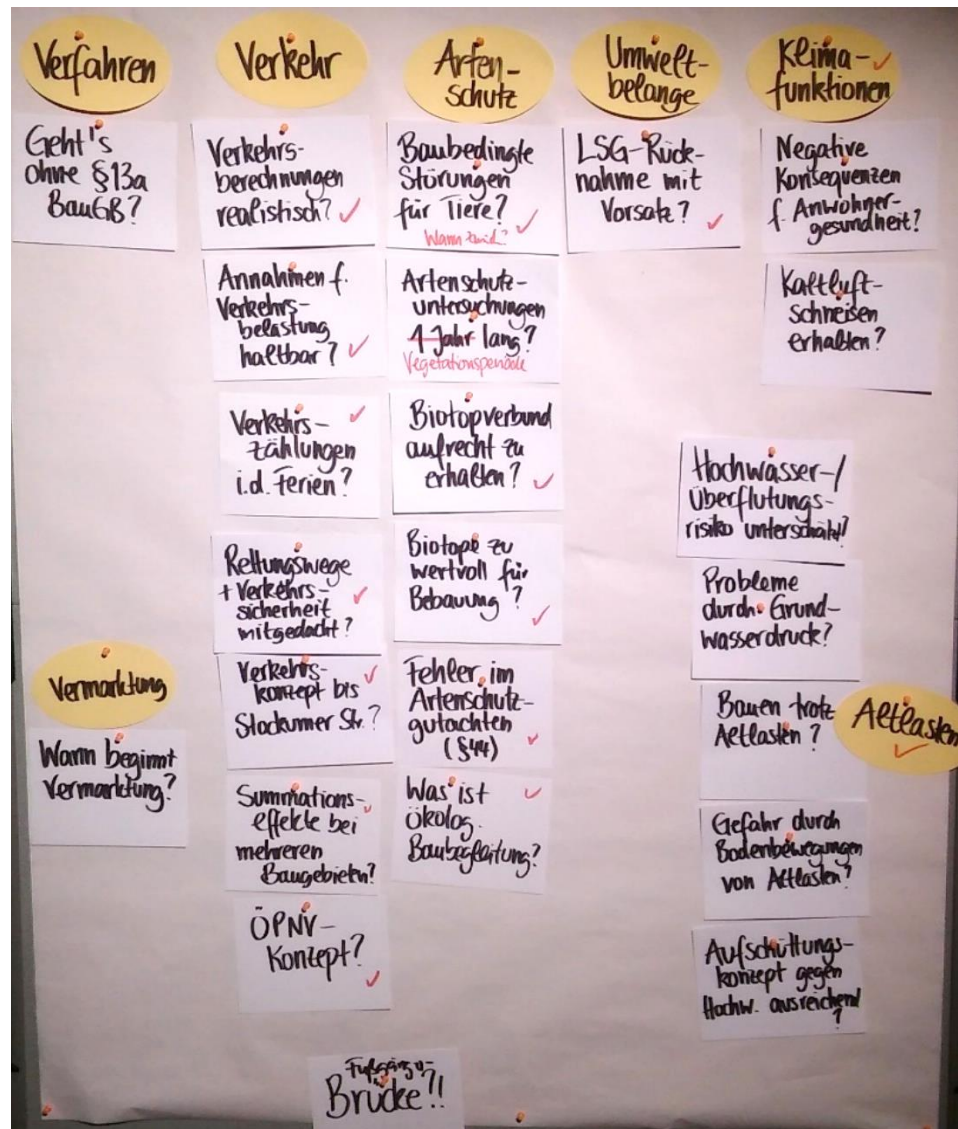 Verfahren
Geht's
ohne §13a
BauGB?
Vermarktung
Wann beginnt
Vermarktung?
Verkehr
Verkehrs-
berechnungen
realistisch?
Annahmen f.
Verkehrs-
belastung
haltbar?
Verkehrs-
zählungen
i.d. Ferien?
Rettungswege
+ Verkehrs-
sicherheit
mitgedacht?
Verkehrs-
konzept bis
Stockumer Str.?
Summations-
effekte bei
mehreren
Baugebieten?
ÖPNV-
Konzept?
Fußgänger-
Brücke?!
Arten-
schutz
Baubedingte
Störungen
für Tiere?
Wann sind?
Artenschutz-
untersuchungen
1 Jahr lang?
Vegetationsperiode
Biotopverbund
aufrecht zu
erhalten?
Biotope zu
wertvoll für
Bebauung?
Fehler im
Artenschutz-
gutachten
(§44)
Was ist
ökolog.
Baubegleitung?
Umwelt-
belange
LSG-Rück-
nahme mit
Vorsatz?
Klima-
funktionen
Negative
Konsequenzen
f. Anwohner-
gesundheit?
Kaltluft-
Schneisen
erhalten?
Hochwasser-/
Überflutungs-
risiko unterschätzt?
Probleme
durch Grund-
wasserdruck?
Altlasten
Bauen trotz
Altlasten?
Gefahr durch
Bodenbewegungen
von Altlasten?
Aufschüttungs-
konzept gegen
Hochw. ausreichend
?